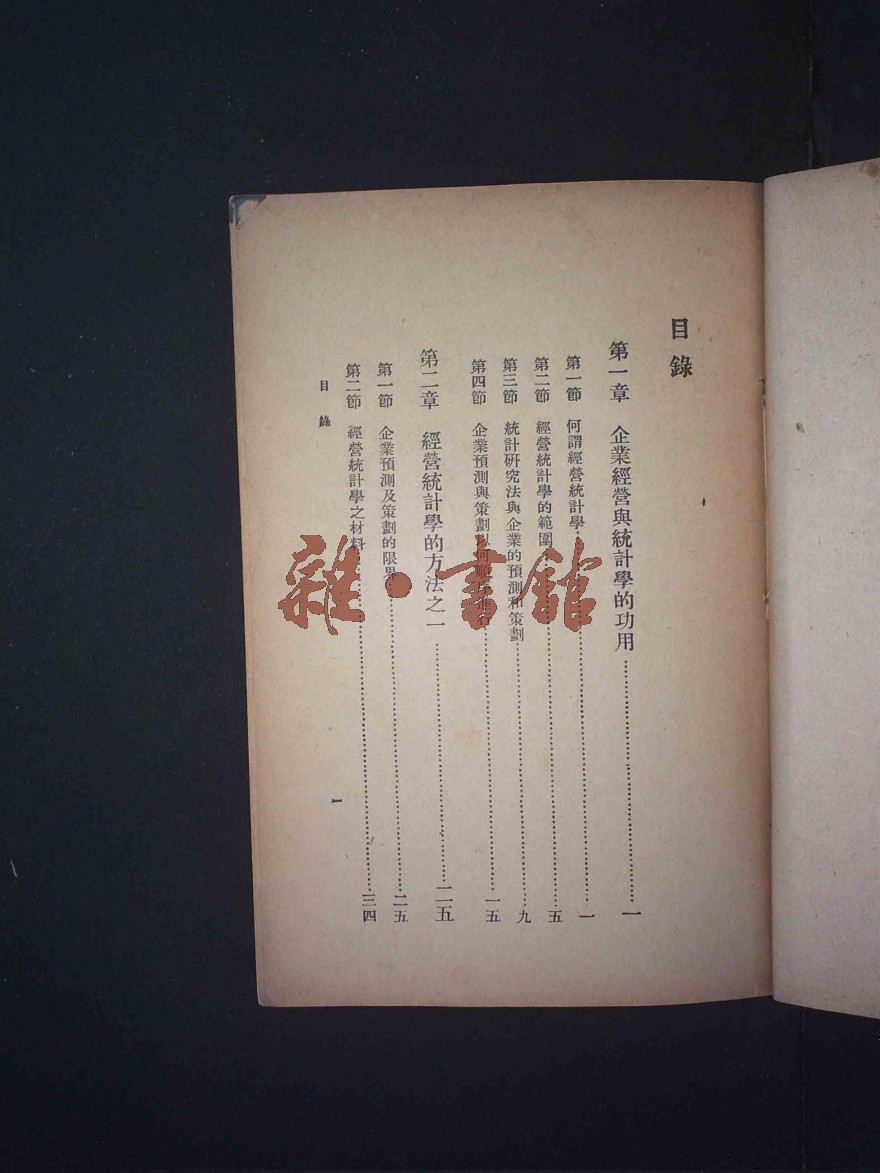 目錄
第一章 企業經營與統計學的功用……一
第一節 何謂經營統計學……一
第二節 經營統計學的範圍……五
第三節 統計研究法與企業的預測和策劃……九
第四節 企業預測與策劃……一五
第二章 經營統計學的方法之一……二五
第一節 企業預測及策劃的限界……二五
第二節 經營統計學之材料……三四
目錄
一
雜·書館